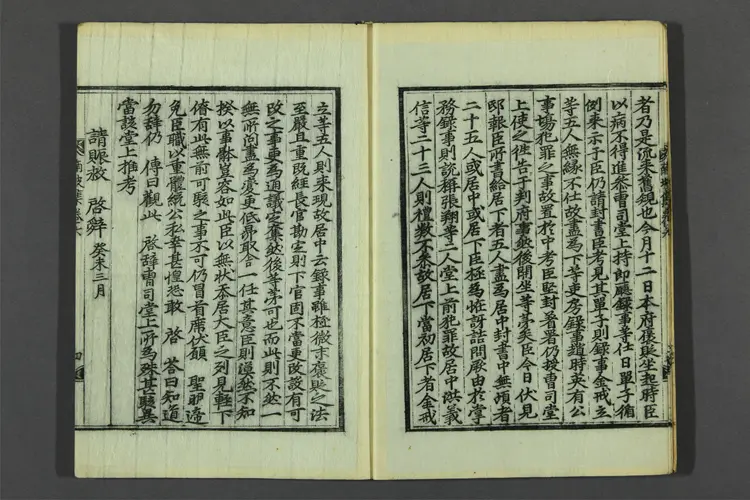 者乃是流來舊規也今月十二日本府褒貶坐起時臣
以病不得進參曹司堂上持卽廳錄事等仕日單子循
例來示于臣仍請封書臣考見其單子則錄事金戒立
等五人無緣不仕故盡爲下等吏房錄事趙時英有公
事場犯罪之事故置於中考臣堅封着署仍授曹司堂
上使之徃告于判府事然後開坐等第矣臣今日伏見
邸報臣所書給居下者五人盡爲居中封書中無頉者
二十五人或居中或居下臣極爲恠訝詰問厥由於掌
務錄事則說稱張翔等二人堂上前犯罪故居中洪義
信等二十三人則禮數不來故居下當初居下者金戒
立等五人則來現故居中云錄事雖極微末褒貶之法
至嚴且重旣經長官勘定則下官固不當更改設有可
改之事更爲通議定奪然後等第可也而此則不然一
無所問盡爲變更低昻取舍一任其意臣則邈然不知
揆以事體豈容如此臣以無狀忝居大臣之列見輕下
僚有此無前可駭之事不可仍冒着席伏願 聖明遞
免臣職以重體統公私幸甚惶恐敢 啓 答曰知道
勿辭仍 傳曰觀此 啓辭曹司堂上所爲殊甚駭異
當該堂上推考
請賑救 啓辭 癸未三月